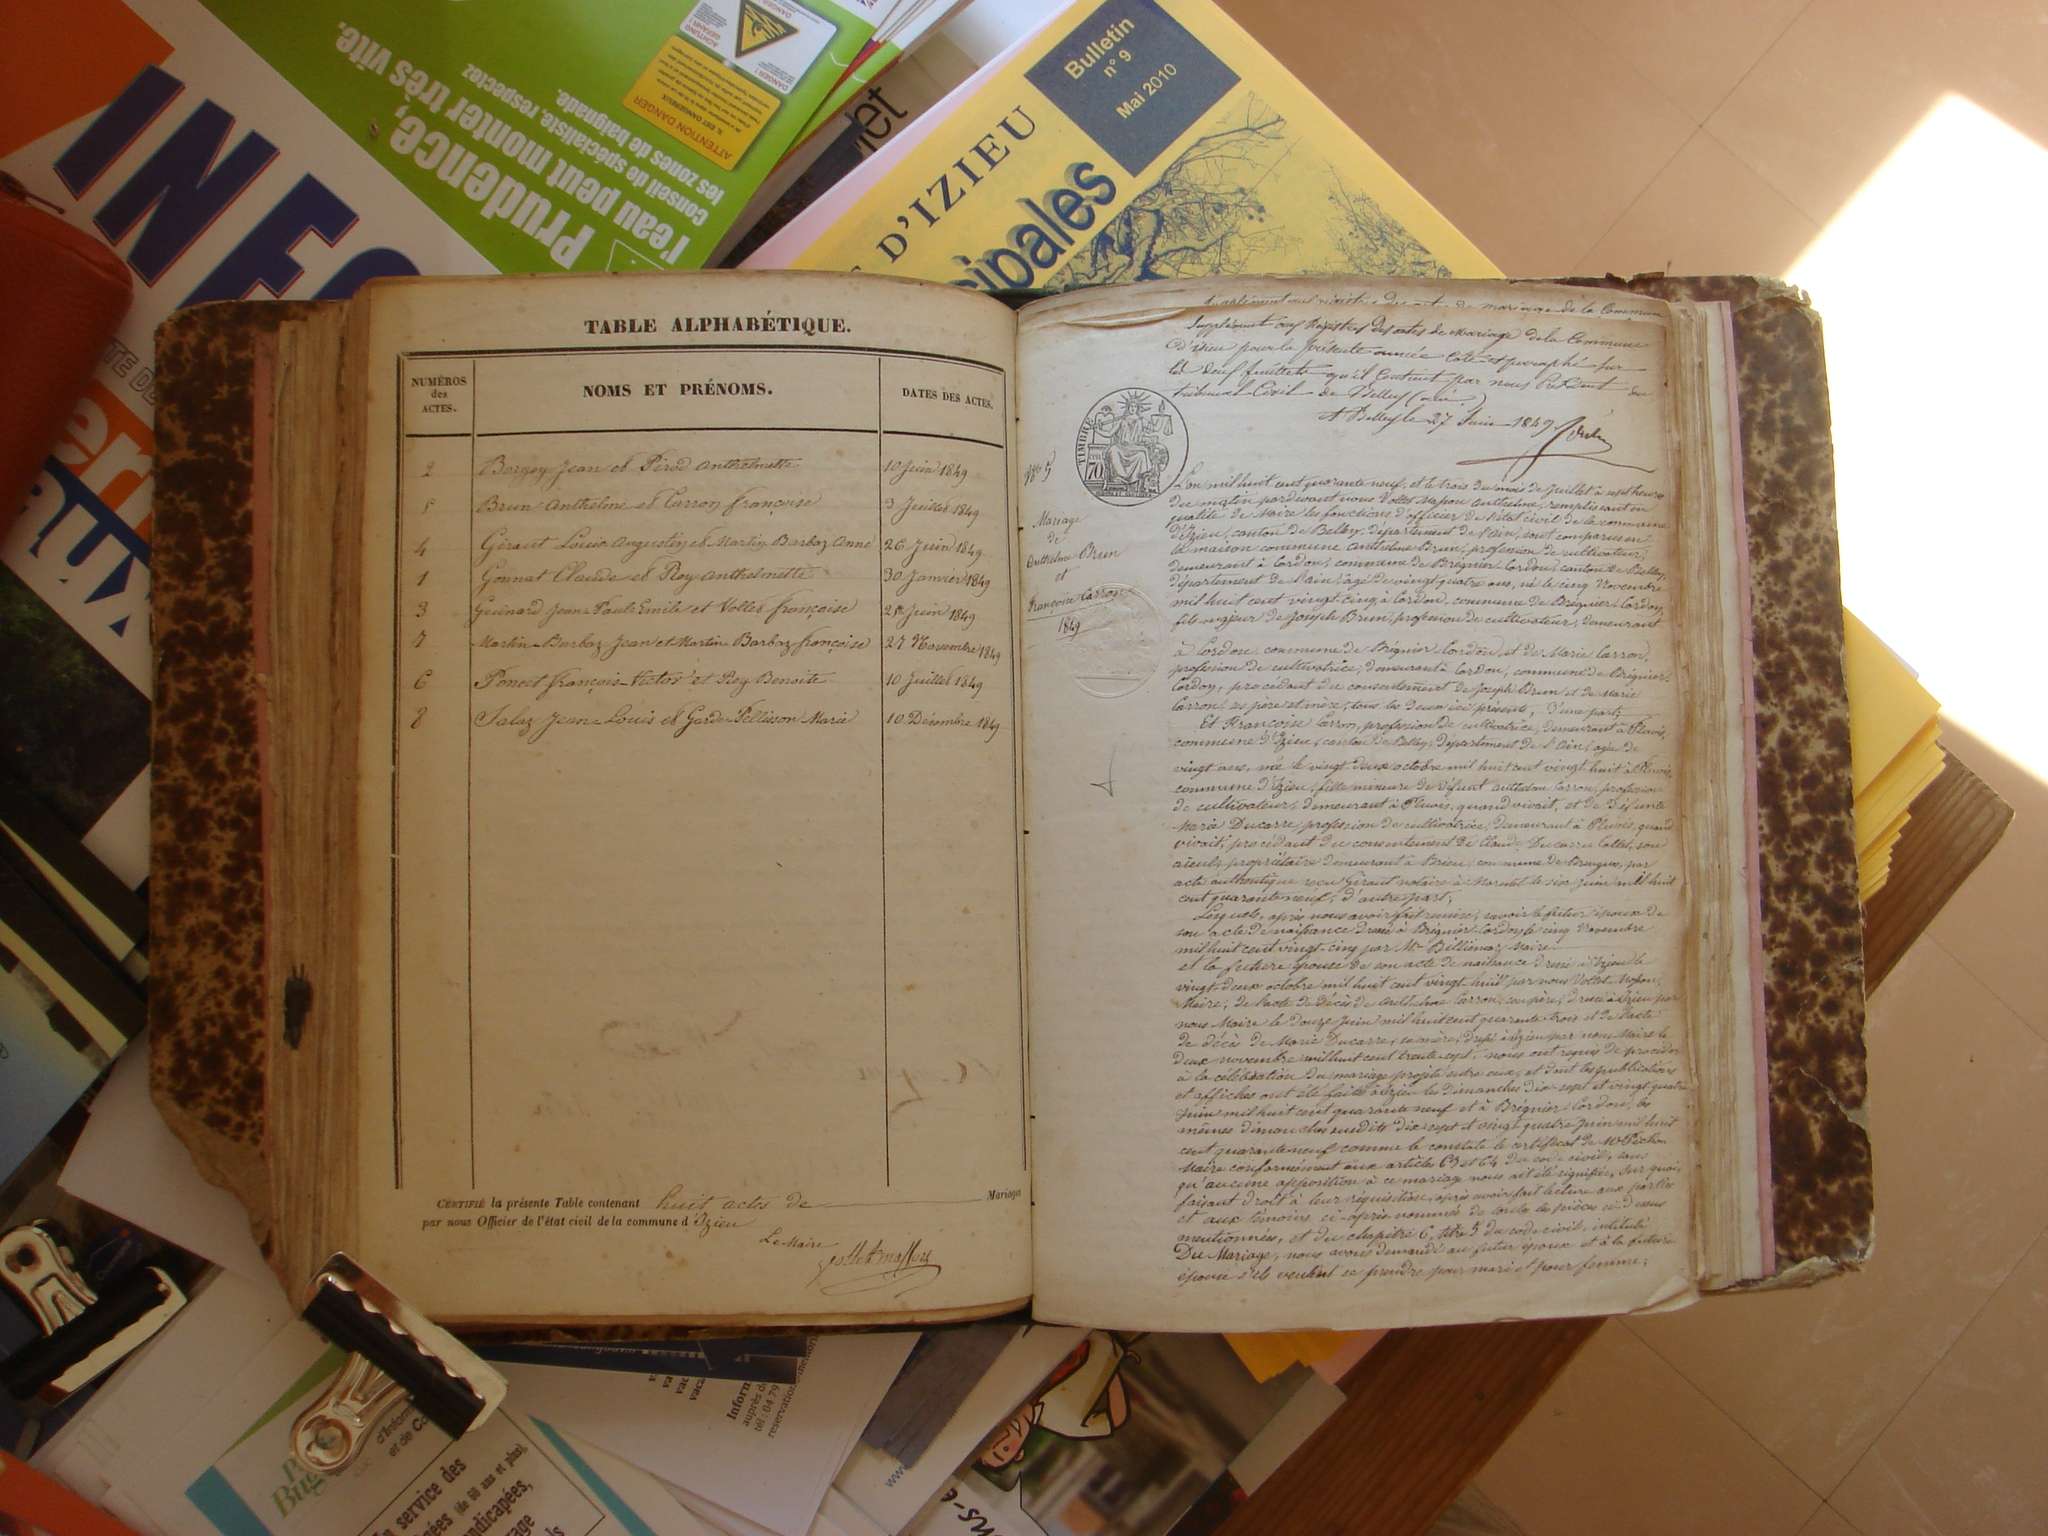 INFO
Prudence,
l'eau peut monter très vite.
conseil de spécialiste, respectez
les zones de baignade.
ATTENTION DANGER
Bulletin
n° 9
Mai 2010
D'IZIEU
cipales
TABLE ALPHABÉTIQUE.
NUMÉROS des ACTES.
NOMS ET PRÉNOMS.
DATES DES ACTES.
2 Jean et Anthelmette 10 Juin 1849
5 Brun Anthelme et Carron françoise 3 Juillet 1849
4 Giraut Louis Augustin et Martin Barbaz Anne 26 Juin 1849
1 Gonnat Claude et Roy Anthelmette 30 Janvier 1849
3 Guinard Jean Paul Emile et Vollet françoise Juin 1849
7 Martin Barbaz Jean et Martin Barbaz françoise 27 Novembre 1849
6 Poncet françois Victor et Rey Benoite 10 Juillet 1849
8 Jean Louis et Pellisson Marie 10 Décembre 1849
CERTIFIÉ la présente Table contenant huit actes de Mariages
par nous Officier de l'état civil de la commune d'Izieu
Le Maire
Supplément aux Registres des actes de Mariage de la Commune
d'izieu pour la présente année Coté et paraphé sur
les neuf feuillets qu'il Contient par nous Président du
tribunal Civil de Belley (ain)
A Belley le 27 Juin 1849
TIMBRE
70
N° 5
Mariage
de
Anthelme Brun
et
Françoise Carron
1849
L'an mil huit cent quarante neuf, et le trois du mois de Juillet à sept heures
du matin pardevant nous Vollet Anthelme, remplissant en
qualité de Maire les fonctions d'officier de l'état civil de la commune
d'Izieu, canton de Belley, département de l'Ain, sont comparus en
la maison commune Anthelme Brun, profession de cultivateur,
demeurant à Cordon, commune de Brégnier Cordon, canton de Belley,
département de l'ain, âgé de vingt quatre ans, né le cinq Novembre
mil huit cent vingt-cinq à Cordon, commune de Brégnier-Cordon,
fils majeur de Joseph Brun, profession de cultivateur, demeurant
à Cordon commune de Brégnier Cordon, et de Marie Carron,
profession de cultivatrice, demeurant à Cordon, commune de Brégnier-
Cordon, procédant du consentement de Joseph Brun et de Marie
Carron, ses père et mère, tous les deux ici présents, d'une part;
Et Françoise Carron, profession de cultivatrice, demeurant à
commune d'Izieu, canton de Belley, département de l'Ain, agée de
vingt ans, née le vingt-deux octobre mil huit cent vingt huit à
commune d'Izieu, fille mineure de défunt Anthelme Carron, profession
de cultivateur, demeurant à quand vivait, et de défunte
Marie Ducarre profession de cultivatrice, demeurant à quand
vivait, procédant du consentement de Claude Ducarre son
aïeul, propriétaire demeurant à commune de par
acte authentique reçu Giraut notaire à le six Juin mil huit
cent quarante neuf, d'autre part;
Lesquels, après nous avoir fait remise, savoir le futur époux de
son acte de naissance dressé à Brégnier-Cordon le cinq Novembre
mil huit cent vingt-cinq par Mr Maire
et la future épouse de son acte de naissance dressé à Izieu le
vingt deux octobre mil huit cent vingt-huit par nous Vollet
Maire; de l'acte de décès de Anthelme Carron, son père, dressé à Izieu par
nous Maire le douze Juin mil huit cent quarante-trois et de l'acte
de décès de Marie Ducarre, sa mère, dressé à Izieu par nous Maire le
deux novembre mil huit cent trente-sept, nous ont requis de procéder
à la célébration du mariage projeté entre eux, et dont les publications
et affiches ont été faites à Izieu les dimanches dix-sept et vingt quatre
Juin mil huit cent quarante neuf et à Brégnier Cordon, les
mêmes dimanches susdits dix-sept et vingt quatre Juin mil huit
cent quarante neuf comme le constate le certificat de Mr
Maire conformément aux articles 63 et 64 du code civil, sans
qu'aucune opposition à ce mariage nous ait été signifiée, sur quoi,
faisant droit à leur réquisition, après avoir fait lecture aux parties
et aux témoins ci-après nommés de toutes les pièces ci-dessus
mentionnées, et du chapitre 6, titre 5 du code civil, intitulé
Du Mariage, nous avons demandé au futur époux et à la future
épouse s'ils veulent se prendre pour mari et pour femme;